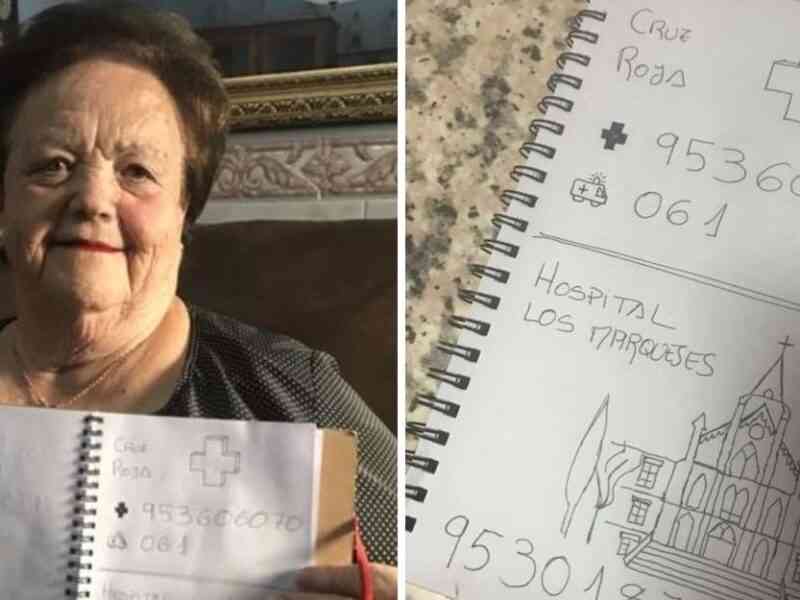 CRUZ
ROJA
953606070
061
HOSPITAL
CRUZ
ROJA
95360
061
HOSPITAL
LOS MARQUESES